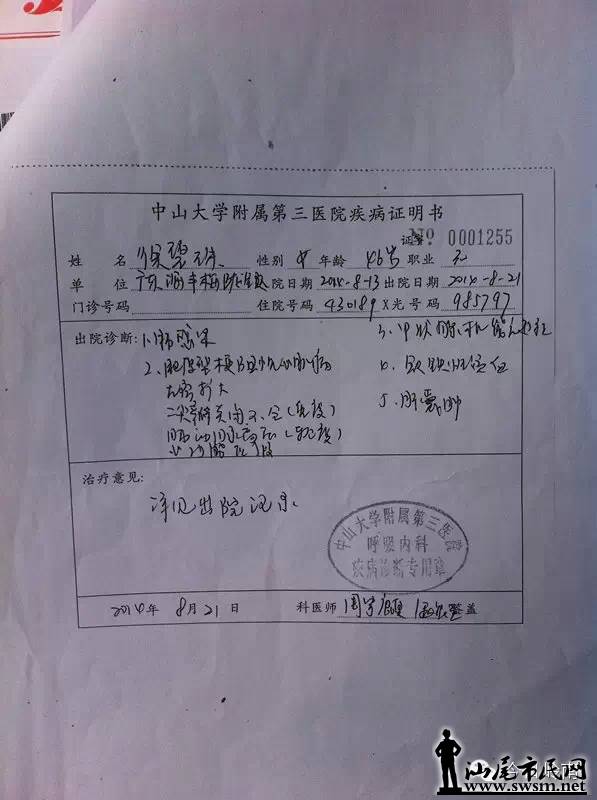 中山大学附属第三医院疾病证明书
证No 0001255
姓名 徐 性别 女 年龄 46岁 职业 无
单位 广 入院日期 2014-8-13 出院日期 2014-8-21
门诊号码 住院号码 430189 X光号码 985797
出院诊断: 1、肺感染
2、肥厚型梗阻性心肌病
左房扩大
二尖瓣关闭不全(
肺动脉高压(轻度)
3、甲状腺
4、缺铁性贫血
5、肝囊肿
治疗意见:
详见出院记录
中山大学附属第三医院
呼吸内科
疾病诊断专用章
2014年 8月21日 科医师 周 盖
汕尾市民网
www.swsm.net